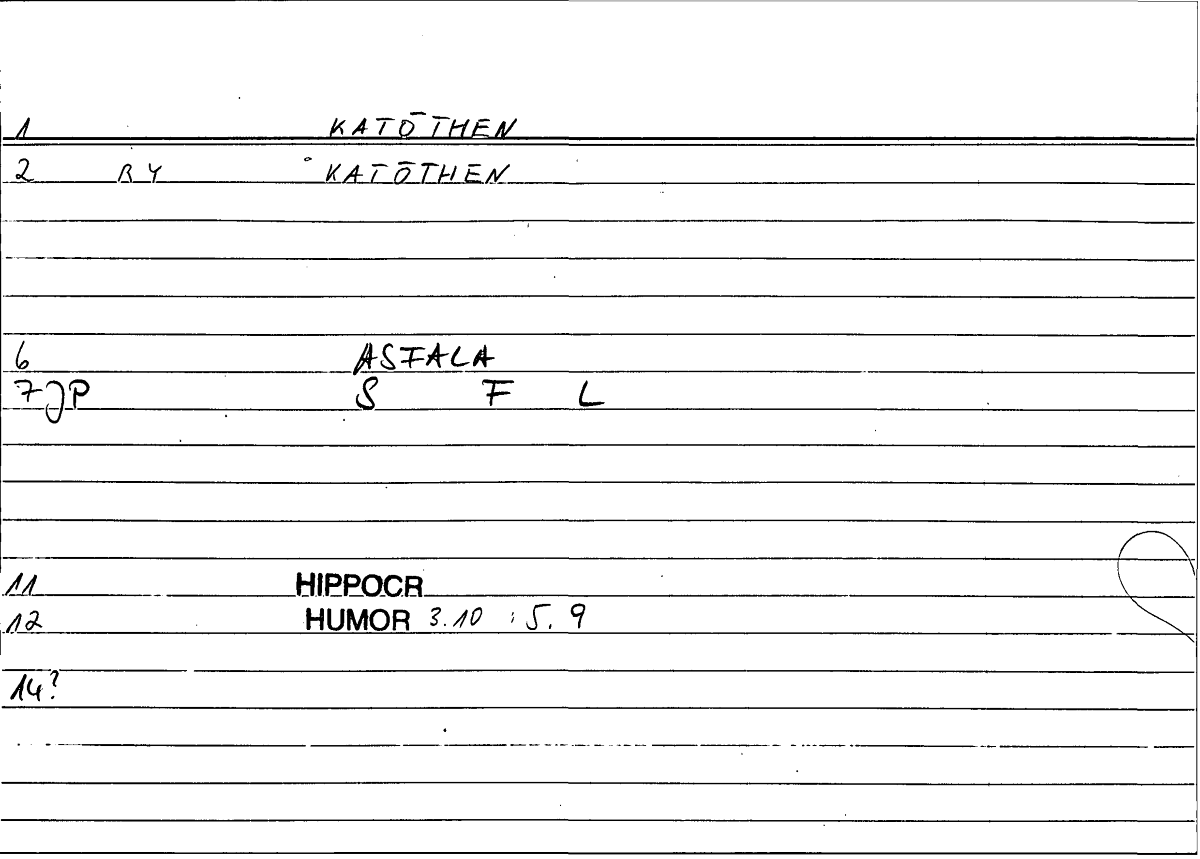 1 KATŌTHEN
2 BY KATŌTHEN
6 ASFALA
7 JP S F L
11 HIPPOCR
12 HUMOR 3.10 : 5. 9
14?